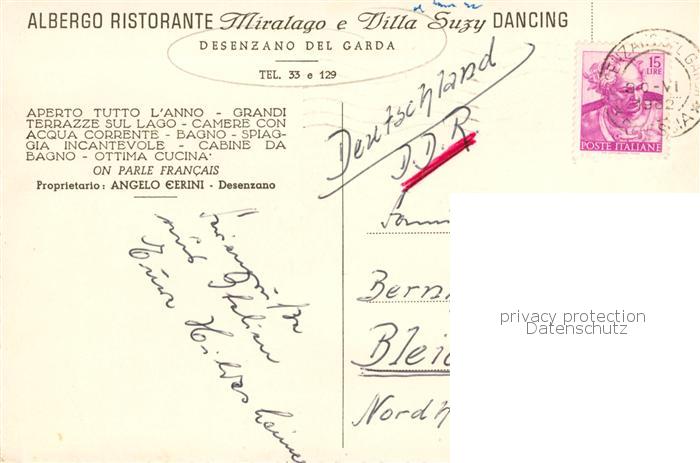 ALBERGO RISTORANTE Miralago e Villa Suzy DANCING
DESENZANO DEL GARDA
TEL. 33 e 129
APERTO TUTTO L'ANNO - GRANDI
TERRAZZE SUL LAGO - CAMERE CON
ACQUA CORRENTE - BAGNO - SPIAG-
GIA INCANTEVOLE - CABINE DA
BAGNO - OTTIMA CUCINA
ON PARLE FRANÇAIS
Proprietario: ANGELO CERINI - Desenzano
15
LIRE
POSTE ITALIANE
Deutschland
D.D.R.
Fami
Bern
Blei
Nordh
Feriengrüße
aus Italien
privacy protection
Datenschutz